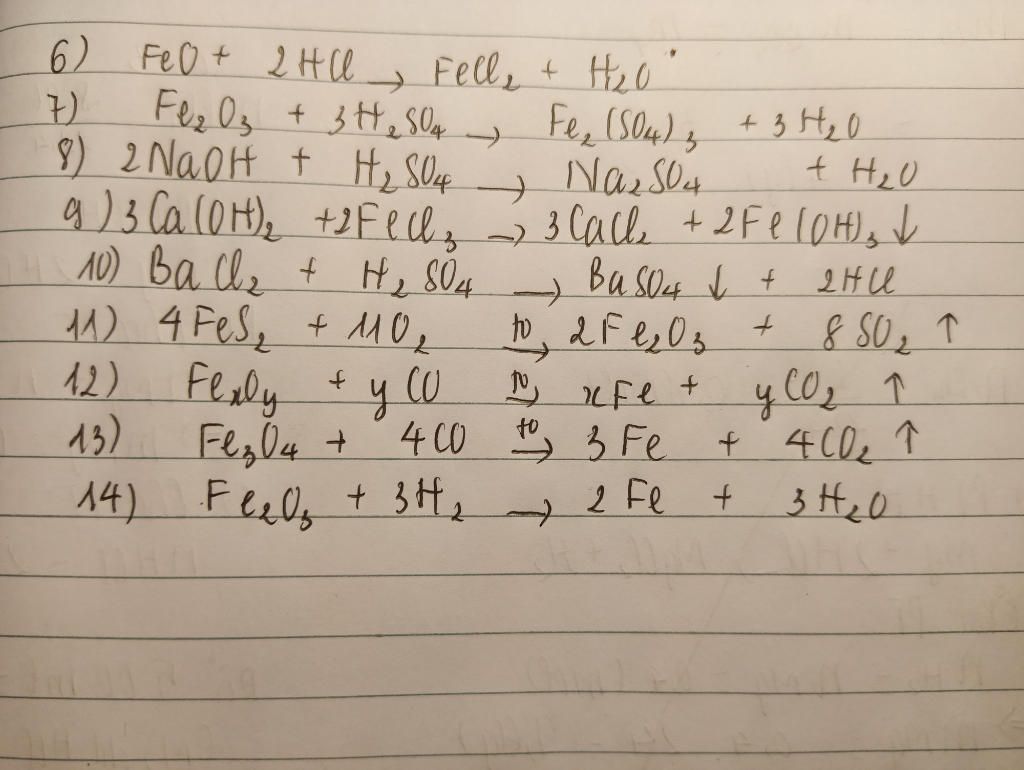 6) FeO + 2HCl → FeCl₂ + H₂O
7) Fe₂O₃ + 3H₂SO₄ → Fe₂(SO₄)₃ + 3H₂O
8) 2NaOH + H₂SO₄ → Na₂SO₄ + H₂O
9) 3Ca(OH)₂ + 2FeCl₃ → 3CaCl₂ + 2Fe(OH)₃ ↓
10) BaCl₂ + H₂SO₄ → BaSO₄ ↓ + 2HCl
11) 4FeS₂ + 11O₂ –t⁰→ 2Fe₂O₃ + 8SO₂ ↑
12) FeₓOy + yCO –t⁰→ xFe + yCO₂ ↑
13) Fe₃O₄ + 4CO –t⁰→ 3Fe + 4CO₂ ↑
14) Fe₂O₃ + 3H₂ → 2Fe + 3H₂O